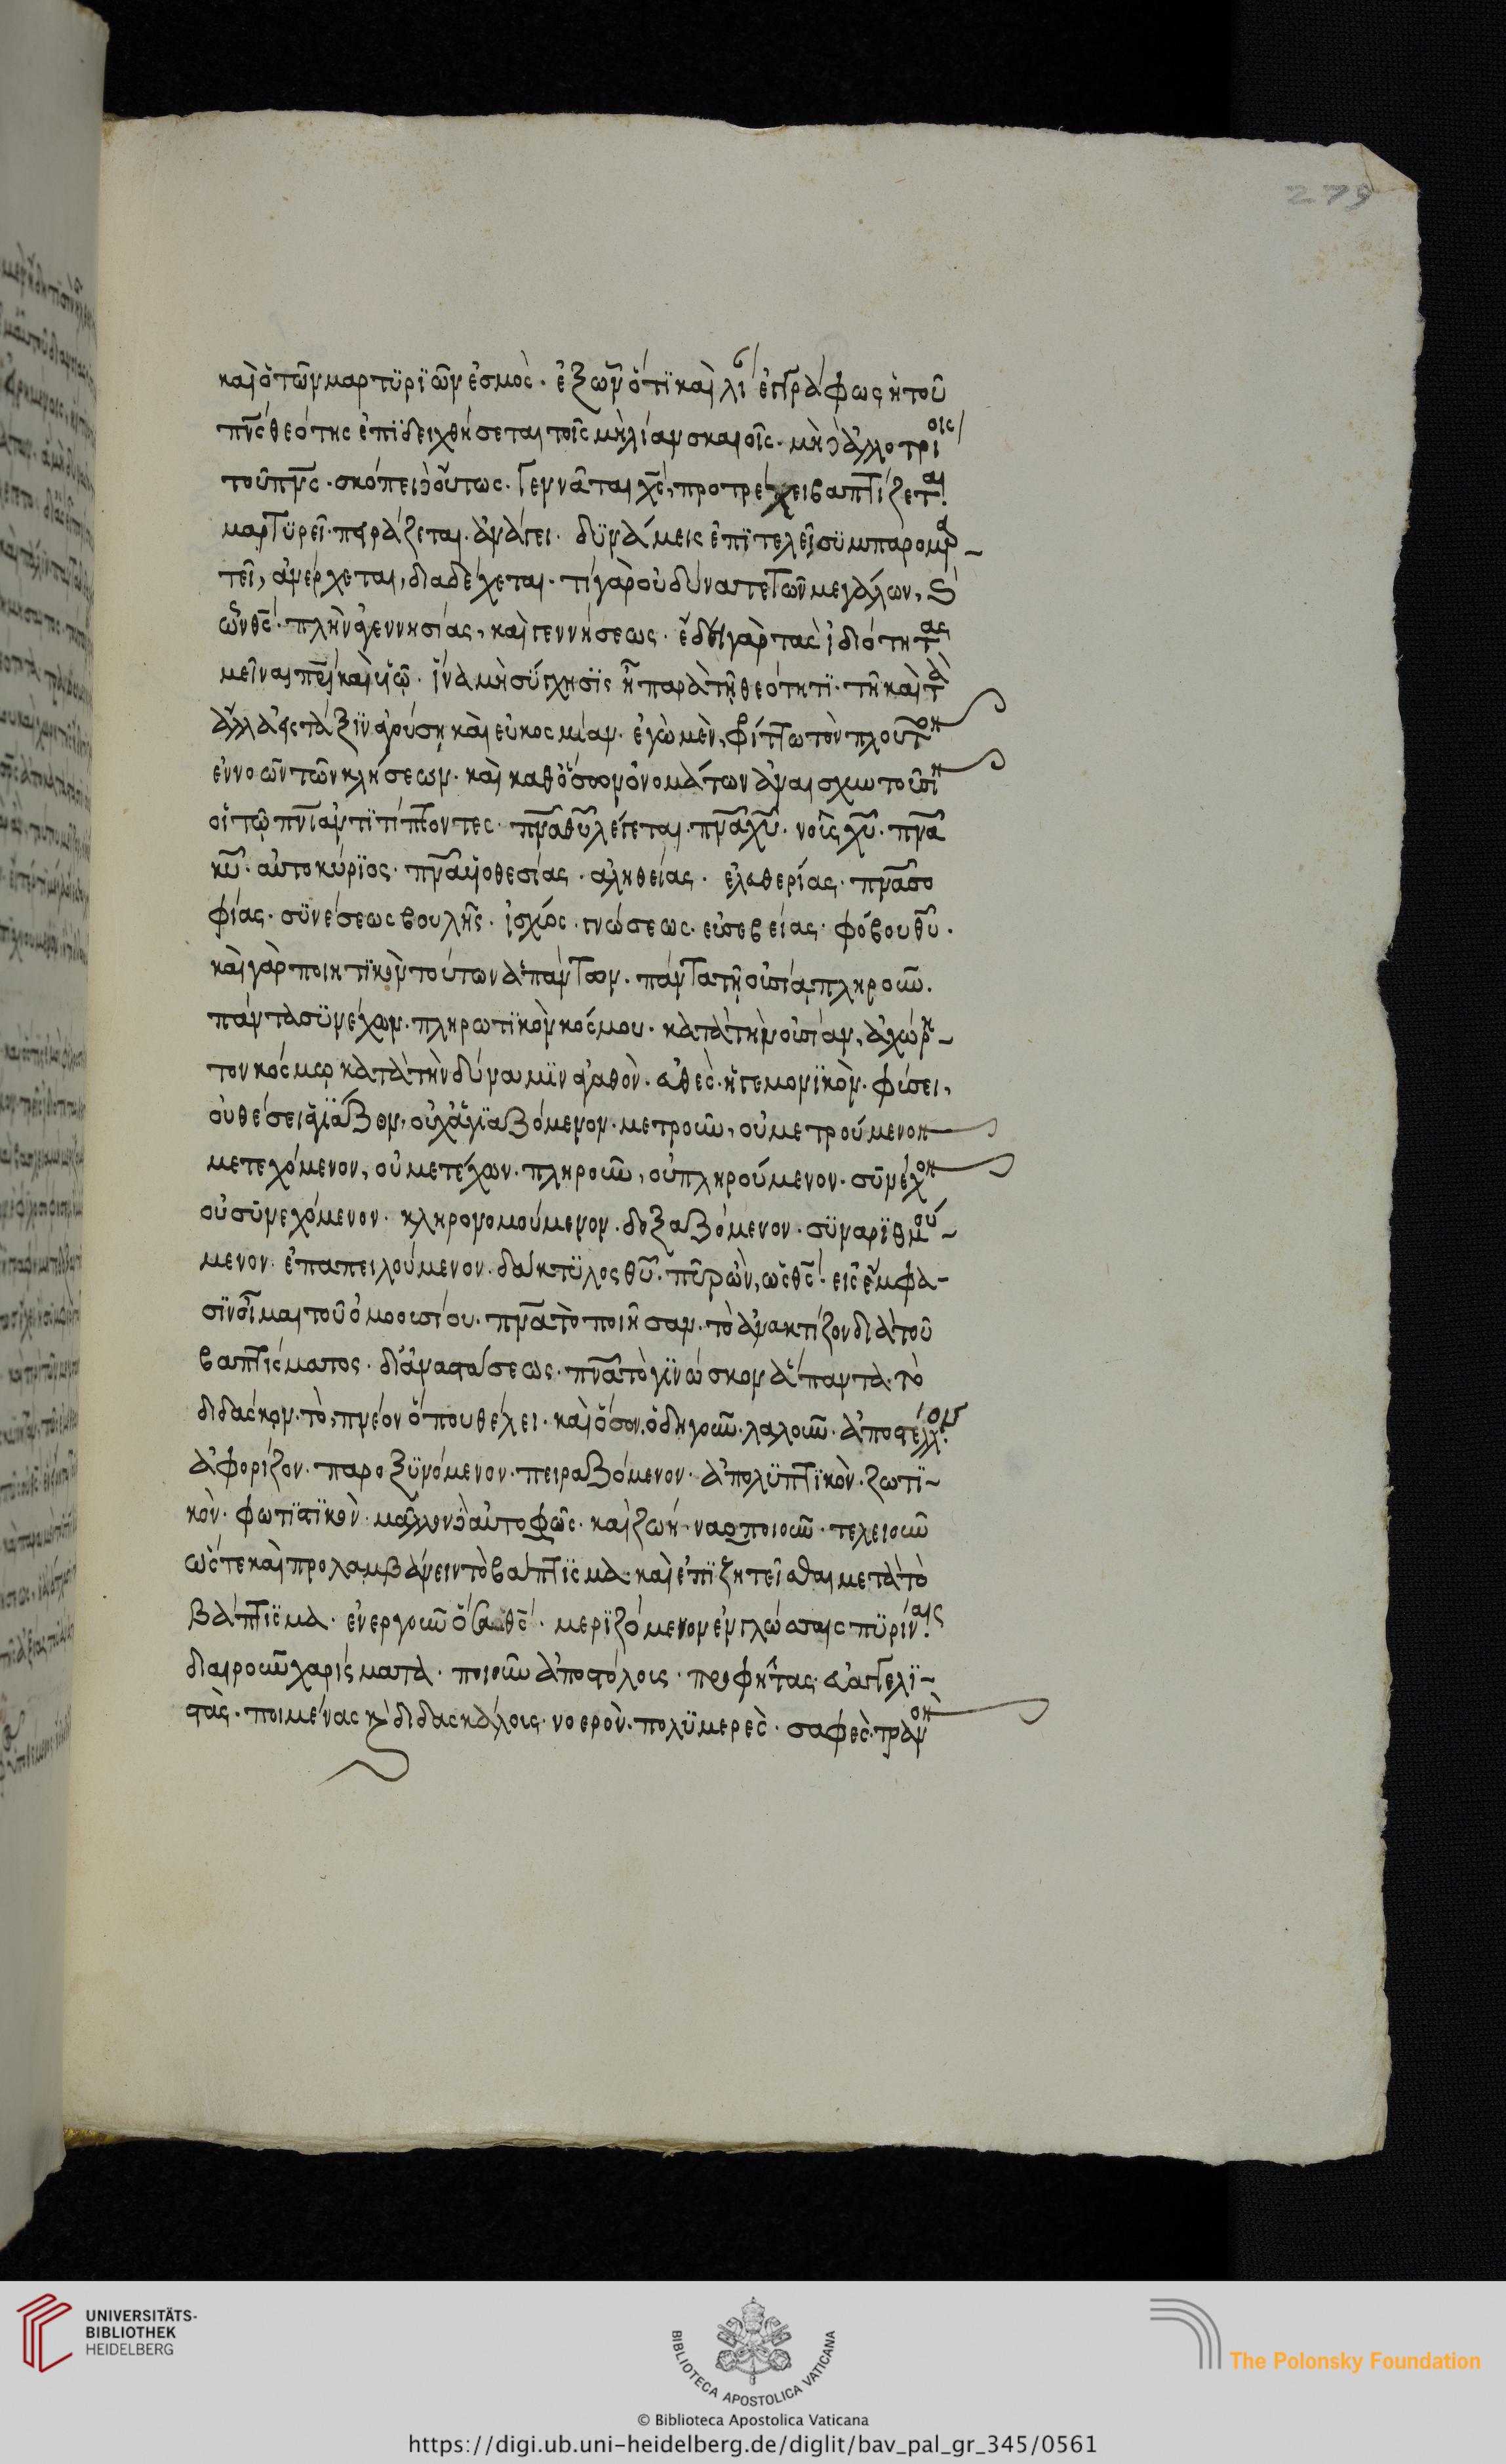 279
καὶ ὁ τῶν μαρτυριῶν ἑσμὸς. ἐξ ὧν ὅτι καὶ λί ἔγγραφως ἡ τοῦ
πνς θεότης ἐπιδειχθήσεται τοῖς μὴ λίαν σκαιοῖς. μὴ δ ἀλλοτρίοις
τοῦ πνς. σκόπει δ οὕτως. γεννᾶται χς, προτρέχει βαπτίζεται
μαρτυρεῖ. πειράζεται. ἀνάγει. δυνάμεις ἐπιτελεῖ συμπαρομαρ-
τεῖ, ἀνέρχεται, διαδέχεται. τί γὰρ οὐ δύναται τῶν μεγάλων,
ὧν θς. πλὴν ἀγεννησίας, καὶ γεννήσεως. ἔδει γὰρ τὰς ἰδιότητας
μεῖναι πρι καὶ υἱῷ. ἵνα μὴ σύγχησις ᾖ παρὰ τῇ θεότητι. τῇ καὶ τὰ
ἄλλα εἰς τάξιν ἀγούσῃ καὶ εὐκοσμίαν. ἐγὼ μὲν, φρίττω τὸν πλοῦτον
ἐννοῶν τῶν κλήσεων. καὶ καθ ὅσων ὀνομάτων ἀναισχυντοῦσιν
οἱ τῷ πνι ἀντιπίπτοντες. πνα θυ λέγεται. πνα χυ. νοῦς χυ. πνα
κυ. αὐτοκύριος. πνα υἱοθεσίας. ἀληθείας. ἐλευθερίας. πνα σο
φίας. συνέσεως βουλῆς. ἰσχύος. γνώσεως. εὐσεβείας. φόβου θυ.
καὶ γὰρ ποιητικὸν τούτων ἁπάντων. πάντα τῇ οὐσίᾳ πληροῦν.
πάντα συνέχων. πληρωτικὸν κόσμου. κατὰ τὴν οὐσίαν, ἀχώρη-
τον κόσμῳ κατὰ τὴν δύναμιν ἀγαθὸν. εὐθὲς. ἡγεμονικὸν. φύσει,
οὐ θέσει ἁγιάζον, οὐχ ἁγιαζόμενον. μετροῦν, οὐ μετρούμενον
μετεχόμενον, οὐ μετέχων. πληροῦν, οὐ πληρούμενον. συνέχον
οὐ συνεχόμενον. κληρονομούμενον. δοξαζόμενον. συναριθμού-
μενον. ἐπαπειλούμενον. δάκτυλος θυ. πῦρ ὢν, ὡς θς. εἰς ἔμφα-
σιν οἶμαι τοῦ ὁμοουσίου. πνα τὸ ποιῆσαν. τὸ ἀνακτίζον διὰ τοῦ
βαπτίσματος. δι ἀναστάσεως. πνα τὸ γινώσκον ἅπαντα. τὸ
διδάσκον. τὸ, πνέον ὅπου θέλει. καὶ ὅσον. ὁδηγοῦν. λαλοῦν. ἀποστέλλον
ἀφορίζον. παροξυνόμενον. πειραζόμενον. ἀπολυπτικὸν. ζωτι-
κὸν. φωτιστικὸν. μᾶλλον δ αὐτοφῶς. καὶ ζωή. ναοποιοῦν. τελειοῦν
ὥστε καὶ προλαμβάνειν τὸ βάπτισμα. καὶ ἐπιζητεῖσθαι μετὰ τὸ
βάπτισμα. ἐνεργοῦν ὅσα θς. μεριζόμενον ἐν γλώσσαις πυρίναις
διαιροῦν χαρίσματα. ποιοῦν ἀποστόλους. προφήτας εὐαγγελι-
στὰς. ποιμένας κ διδασκάλους. νοερὸν. πολυμερὲς. σαφὲς. τρανὸν
UNIVERSITÄTS-
BIBLIOTHEK
HEIDELBERG
BIBLIOTECA APOSTOLICA VATICANA
The Polonsky Foundation
© Biblioteca Apostolica Vaticana
https://digi.ub.uni-heidelberg.de/diglit/bav_pal_gr_345/0561